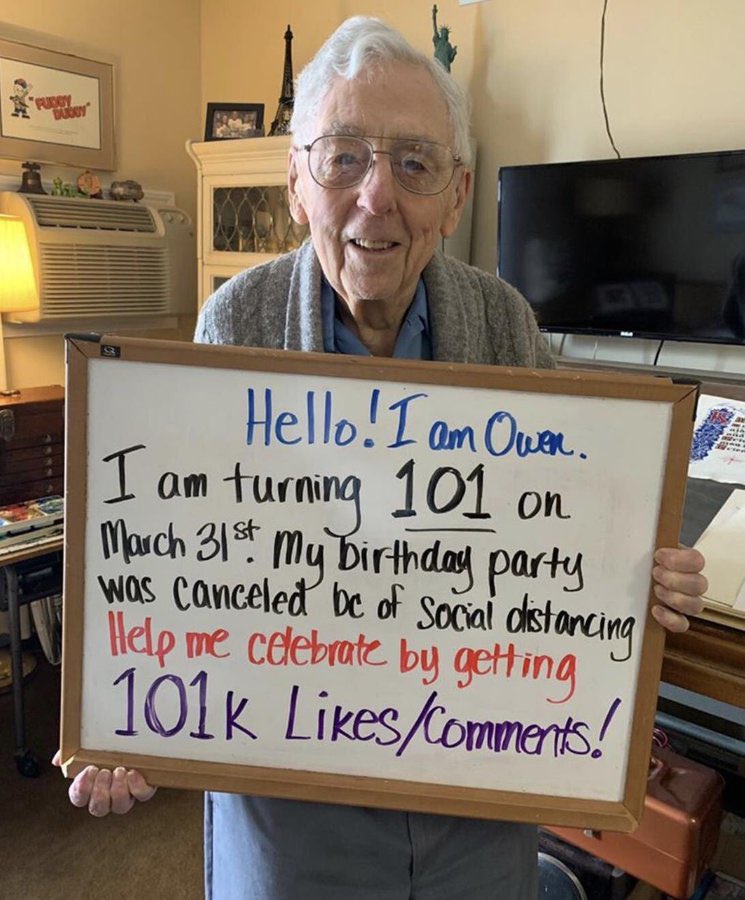 "FUDDY
DUDDY"
Hello! I am Owen.
I am turning 101 on
March 31st. My birthday party
was canceled bc of social distancing
Help me celebrate by getting
101k Likes/Comments!